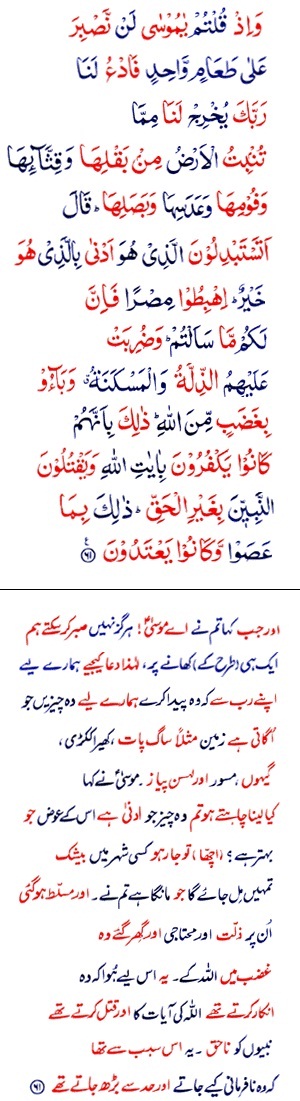 وَاِذْ قُلْتُمْ يٰمُوْسٰى لَنْ نَّصْبِرَ
عَلٰى طَعَامٍ وَّاحِدٍ فَادْعُ لَنَا
رَبَّكَ يُخْرِجْ لَنَا مِمَّا
تُنْۢبِتُ الْاَرْضُ مِنْۢ بَقْلِهَا وَقِثَّآئِهَا
وَفُوْمِهَا وَعَدَسِهَا وَبَصَلِهَا ؕ قَالَ
اَتَسْتَبْدِلُوْنَ الَّذِىْ هُوَ اَدْنٰى بِالَّذِىْ هُوَ
خَيْرٌ ؕ اِهْبِطُوْا مِصْرًا فَاِنَّ
لَكُمْ مَّا سَاَلْتُمْ ؕ وَضُرِبَتْ
عَلَيْهِمُ الذِّلَّةُ وَالْمَسْكَنَةُ ۗ وَبَآءُوْ
بِغَضَبٍ مِّنَ اللّٰهِ ؕ ذٰلِكَ بِاَنَّهُمْ
كَانُوْا يَكْفُرُوْنَ بِاٰيٰتِ اللّٰهِ وَيَقْتُلُوْنَ
النَّبِيّٖنَ بِغَيْرِ الْحَقِّ ؕ ذٰلِكَ بِمَا
عَصَوْا وَّكَانُوْا يَعْتَدُوْنَ ﴿۶۱﴾ ع
اور جب کہا تم نے اے موسیٰؑ! ہرگز نہیں صبر کرسکتے ہم
ایک ہی (طرح کے) کھانے پر، لہٰذا دعا کیجیے ہمارے لیے
اپنے رب سے کہ وہ پیدا کرے ہمارے لیے وہ چیزیں جو
اُگاتی ہے زمین مثلاً ساگ پات، کھیرا ککڑی،
گیہوں، مسور اور لہسن پیاز۔ موسیٰؑ نے کہا
کیا لینا چاہتے ہو تم وہ چیز جو ادنیٰ ہے اس کے عوض جو
بہتر ہے؟ (اچّھا) تو جا رہو کسی شہر میں بیشک
تمہیں مل جائے گا جو مانگا ہے تم نے۔ اور مسلّط ہوگئی
اُن پر ذلّت اور محتاجی اور گِھر گئے وہ
غضب میں اللہ کے۔ یہ اس لیے ہُوا کہ وہ
انکار کرتے تھے اللہ کی آیات کا اور قتل کرتے تھے
نبیوں کو ناحق۔ یہ اس سبب سے تھا
کہ وہ نافرمانی کیے جاتے اور حد سے بڑھ جاتے تھے ﴿۶۱﴾